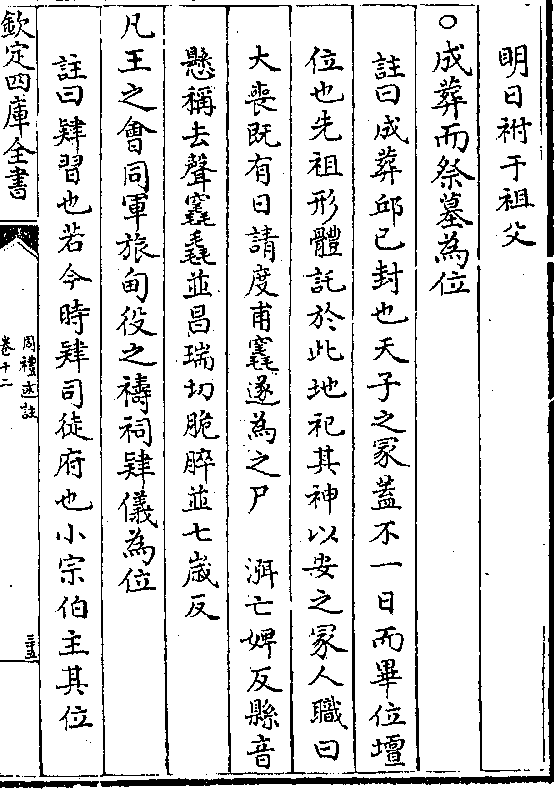 明日祔于祖父
○成葬而祭墓為位
註曰成葬邱已封也天子之冢蓋不一日而畢位壇
位也先祖形體託於此地祀其神以安之冢人職曰
大喪既有日請度甫竁遂為之尸　渳亡婢反縣音
懸稱去聲竁毳並昌瑞切脆脺並七歲反
凡王之會同軍旅甸役之禱祠肄儀為位
註曰肄習也若今時肄司徒府也小宗伯主其位
欽定四庫全書
周禮述註
卷十二
三五